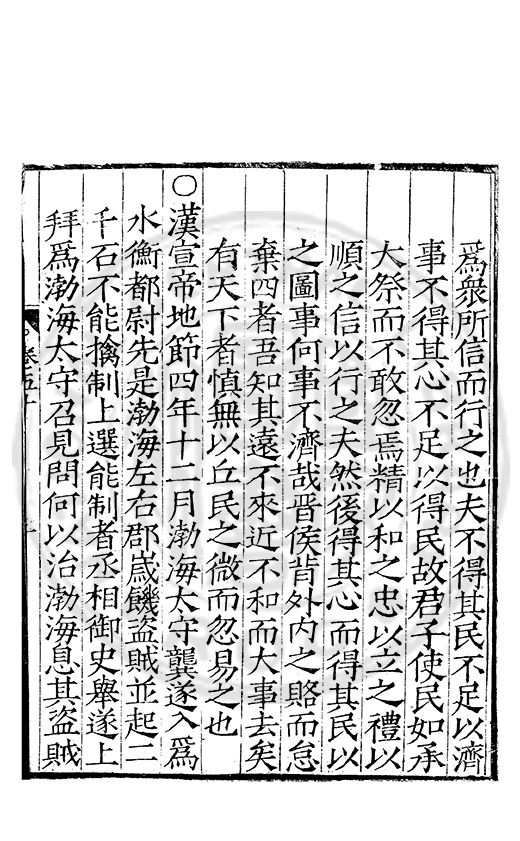 爲衆所信而行之也夫不得其民不足以濟
事不得其心不足以得民故君子使民如承
大祭而不敢忽焉精以和之忠以立之禮以
順之信以行之夫然後得其心而得其民以
之圖事何事不濟哉晋侯背外内之賂而怠
棄四者吾知其遠不來近不和而大事去矣
有天下者慎無以丘民之微而忽易之也
○漢宣帝地節四年十二月渤海太守龔遂入爲
水衡都尉先是渤海左右郡歲饑盗賊並起二
千石不能擒制上選能制者丞相御史舉遂上
拜爲渤海太守召見問何以治渤海息其盗賊
卷五十